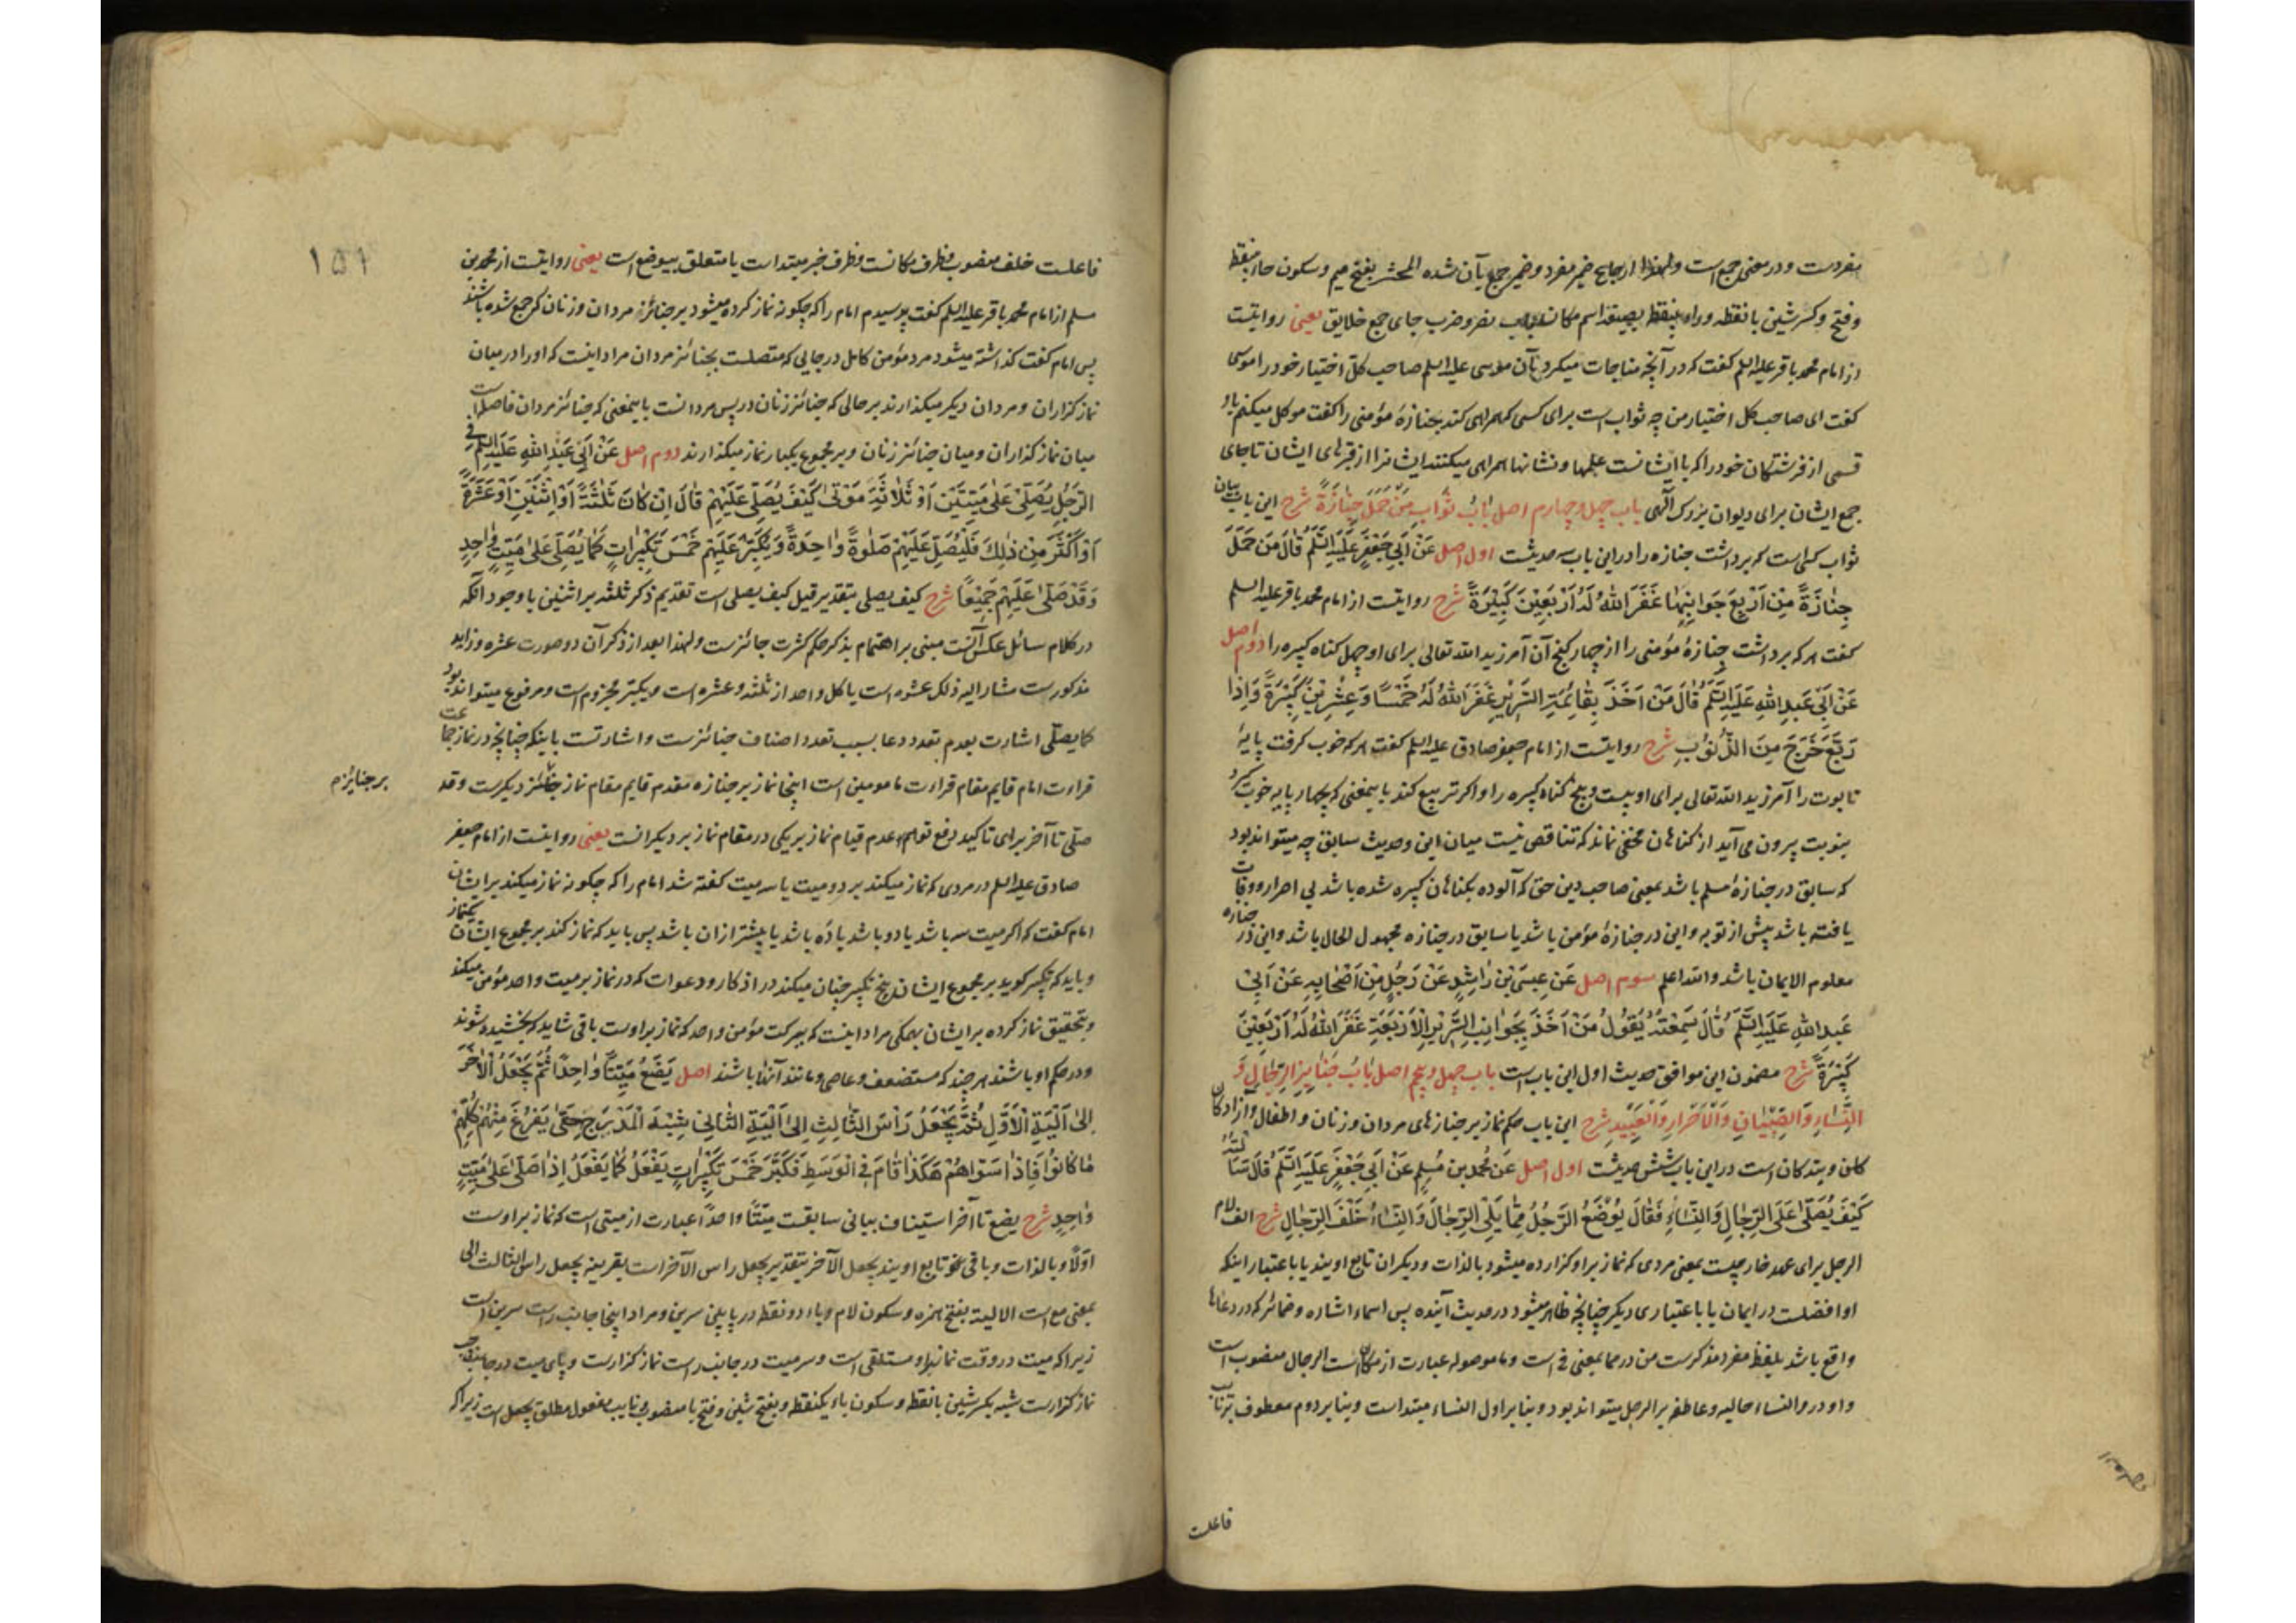 مفردست و در معنی جمع است ولهذا ارجاع ضمیر مفرد و ضمیر جمع بآن شده المحشر بفتح میم و سکون حاء بینقطه
و فتح و کسر شین بانقطه و راء بینقطه بصیغه اسم مکان باب نصر و ضرب جای جمع خلایق یعنی روایتست
از امام محمد باقر علیه السلم گفت که در آنچه مناجات میکرد بآن موسی علیه السلم صاحب کل اختیار خود را موسی
گفت ای صاحب کل اختیار من چه ثواب است برای کسی که همراهی کند بجنازهٔ مؤمنی را گفت موکل میکنم باو
قسمی از فرشتگان خود را که با ایشانست علمها و نشانها همراهی میکنند ایشانرا از قبرهای ایشان تا جای
جمع ایشان برای دیوان بزرگ الهی باب چهل و چهارم اصل بَابُ ثَوَابِ مَنْ حَمَلَ جِنَازَةً شرح این باب بیان
ثواب کسی است که برداشت جنازه را در این باب سه حدیثست اول اصل عَنْ اَبِی جَعْفَرٍ عَلَیْهِ السَّلَمُ قَالَ مَنْ حَمَلَ
جِنَازَةً مِنْ اَرْبَعِ جَوَانِبِهَا غَفَرَ اللهُ لَهُ اَرْبَعِینَ کَبِیْرَةً شرح روایتست از امام محمد باقر علیه السلم
گفت هر که برداشت جنازهٔ مؤمنی را از چهار کنج آن آمرزید الله تعالی برای او چهل گناه کبیره را دوم اصل
عَنْ اَبِی عَبْدِ اللهِ عَلَیْهِ السَّلَمُ قَالَ مَنْ اَخَذَ بِقَائِمَةِ السَّرِیْرِ غَفَرَ اللهُ لَهُ خَمْسًا وَعِشْرِیْنَ کَبِیْرَةً وَاِذَا
رَبَّعَ خَرَجَ مِنَ الذُّنُوْبِ شرح روایتست از امام جعفر صادق علیه السلم گفت هر که خوب گرفت پایهٔ
تابوت را آمرزید الله تعالی برای او بیست و پنج گناه کبیره را و اگر تربیع کند باینمعنی که چهار پایه خوب گیرد
بنوبت بیرون می آید از گناهان مخفی نماند که تناقض نیست میان این و حدیث سابق چه میتواند بود
که سابق در جنازهٔ مسلم باشد بمعنی صاحب دین حق که آلوده بگناهان کبیره شده باشد بی اصرار و وفات
یافته باشد پیش از توبه و این در جنازهٔ مؤمن باشد یا سابق در جنازه مجهول الحال باشد و این در جنازه
معلوم الایمان باشد والله اعلم سوم اصل عَنْ عِیسَی بْنِ رَاشِدٍ عَنْ رَجُلٍ مِنْ اَصْحَابِهِ عَنْ اَبِیْ
عَبْدِ اللهِ عَلَیْهِ السَّلَمُ قَالَ سَمِعْتُهُ یَقُوْلُ مَنْ اَخَذَ بِجَوَانِبِ السَّرِیْرِ الْاَرْبَعَةِ غَفَرَ اللهُ لَهُ اَرْبَعِیْنَ
کَبِیْرَةً شرح مضمون این موافق حدیث اول این باب است باب چهل و پنجم اصل بَابُ جَنَائِزِ الرِّجَالِ وَ
النِّسَاءِ وَالصِّبْیَانِ وَالْاَحْرَارِ وَالْعَبِیْدِ شرح این باب حکم نماز بر جنازهای مردان و زنان و اطفال و آزادکان
کان و بندکان است در این باب شش حدیثست اول اصل عَنْ مُحَمَّدِ بنِ مُسْلِمٍ عَنْ اَبِی جَعْفَرٍ عَلَیْهِ السَّلَمُ قَالَ سَئَلْتُهُ
کَیْفَ یُصَلّٰی عَلَی الرِّجَالِ وَالنِّسَاءِ فَقَالَ یُوْضَعُ الرَّجُلُ مِمَّا یَلِی الرِّجَالَ وَالنِّسَاءُ خَلْفَ الرِّجَالِ شرح الف لام
الرجل برای عهد خارجیست بمعنی مردی که نماز بر او گزارده میشود بالذات و دیگران تابع اویند یا باعتبار اینکه
او افضلست در ایمان یا باعتباری دیگر چنانچه ظاهر میشود در حدیث آینده پس اسماء اشاره و ضمائر که در دعاها
واقع باشد بلفظ مفرد مذکرست من در مما بمعنی فی است و ما موصوله عبارت از مکان است الرجال منصوب است
واو در والنساء حالیه و عاطفه بر الرجل میتواند بود و بنابر اول النساء مبتداست و بنابر دوم معطوف بر نایب
فاعلست
فاعلست خلف منصوب بظرف مکانست و ظرف خبر مبتداست یا متعلق بیوضع است یعنی روایتست از محمد بن
مسلم از امام محمد باقر علیه السلم گفت پرسیدم امام را که چگونه نماز کرده میشود بر جنائز مردان و زنان که جمع شده باشند
پس امام گفت گذاشته میشود مرد مؤمن کامل در جایی که متصلست بجنائز مردان مراد اینست که او را در میان
نماز گزاران و مردان دیگر میگذارند بر حالی که جنائز زنان در پس مردانست باینمعنی که جنائز مردان فاصله است
میان نماز گذاران و میان جنائز زنان و بر مجموع یکبار نماز میگذارند دوم اصل عَنْ اَبِیْ عَبْدِ اللهِ عَلَیْهِ السلم فِی
الرَّجُلِ یُصَلِّیْ عَلٰی مَیِّتَیْنِ اَوْ ثَلَاثَةِ مَوْتٰی کَیْفَ یُصَلِّی عَلَیْهِمْ قَالَ اِنْ کَانَ ثَلٰثَةً اَوْ اِثْنَیْنِ اَوْ عَشَرَةً
اَوْ اَکْثَرَ مِنْ ذٰلِکَ فَلْیُصَلِّ عَلَیْهِمْ صَلٰوةً وَاحِدَةً وَیُکَبِّرُ عَلَیْهِمْ خَمْسَ تَکْبِیْرَاتٍ کَمَا یُصَلِّی عَلٰی مَیِّتٍ وَاحِدٍ
وَقَدْ صَلّٰی عَلَیْهِمْ جَمِیْعًا شرح کیف یصلی بتقدیر قیل کیف یصلی است تقدیم ذکر ثلثه بر اثنین با وجود آنکه
در کلام سائل عکس آنست مبنی بر اهتمام بذکر حکم کثرت جائزست ولهذا بعد از ذکر آن دو صورت عشره و زاید
مذکورست مشار الیه ذلک عشره است یا کل واحد از ثلثه و عشره است و یکبّر مجزوم است و مرفوع میتواند بود
کما یصلّی اشارت بعدم تعدد دعا بسبب تعدد اصناف جنائزست و اشارتست باینکه چنانچه در نماز جماعت
قراءت امام قایم مقام قراءت مامومین است اینجا نماز بر جنازه مقدم قایم مقام نماز جنائز دیگرست و قد
بر جنایزه
صلّی تا آخر برای تاکید دفع توهم عدم قیام نماز بر یکی در مقام نماز بر دیگرانست یعنی روایتست از امام جعفر
صادق علیه السلم در مردی که نماز میکند بر دو میت یا سه میت گفته شد امام را که چگونه نماز میکند بر ایشان
امام گفت که اگر میت سه باشد یا دو باشد یا دَه باشد یا بیشتر از آن باشد پس باید که نماز کند بر مجموع ایشان یکنماز
و باید که تکبیر گوید بر مجموع ایشان پنج تکبیر چنان میکند در اذکار و دعوات که در نماز بر میت واحد مؤمن میکند
و بتحقیق نماز کرده بر ایشان بهمگی مراد اینست که ببرکت مؤمن واحد که نماز بر اوست باقی شاید که بخشیده شوند
و در حکم او باشند هر چند که مستضعف و عاصی و مانند آنها باشند اصل یَضَعُ مَیِّتًا وَاحِدًا ثُمَّ یَجْعَلُ الْاٰخَرَ
اِلٰی اَلْیَةِ الْاَوَّلِ ثُمَّ یَجْعَلُ رَأْسَ الثَّالِثِ اِلٰی اَلْیَةِ الثَّانِی شِبْهَ الْمَدْرَجِ حَتّٰی یَفْرُغَ مِنْهُمْ کُلِّهِمْ
مَا کَانُوْا فَاِذَا سَوَّاهُمْ هَکَذَا قَامَ فِی الْوَسَطِ فَکَبَّرَ خَمْسَ تَکْبِیْرَاتٍ یَفْعَلُ کَمَا یَفْعَلُ اِذَا صَلّٰی عَلٰی مَیِّتٍ
وَاحِدٍ شرح یضع تا آخر استیناف بیانی سابقست میّتًا واحدًا عبارت از میتی است که نماز بر اوست
اوّلًا و بالذات و باقی تابع اویند یجعل الآخر بتقدیر یجعل راس الآخر است بقرینه یجعل راس الثالث الی
بمعنی مع است الالیة بفتح همزه و سکون لام و یاء دو نقطه در پایین سرین و مراد اینجا جانب راست سرین است
زیرا که میت در وقت نماز بر او مستلقی است و سر میت در جانب راست نماز گزارست و پای میت در جانب چپ
نماز گزارست شبه بکسر شین بانقطه و سکون باء یکنقطه و بفتح شین و فتح با منصوب و نایب مفعول مطلق یجعل است زیرا که